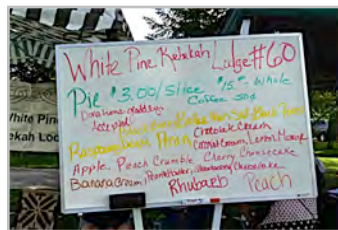 White Pine Rebekah Lodge #60
Pie $3.00/Slice $15.00 Whole
Donations Gladly Coffee 50¢
Accepted!
Pecan Chocolate Cream
Coconut Cream, Lemon Meringue
Apple, Peach Crumble Cherry Cheesecake
Banana Cream, Peanut Butter, Strawberry Cheesecake
Rhubarb Peach
White Pine
ekah Lod